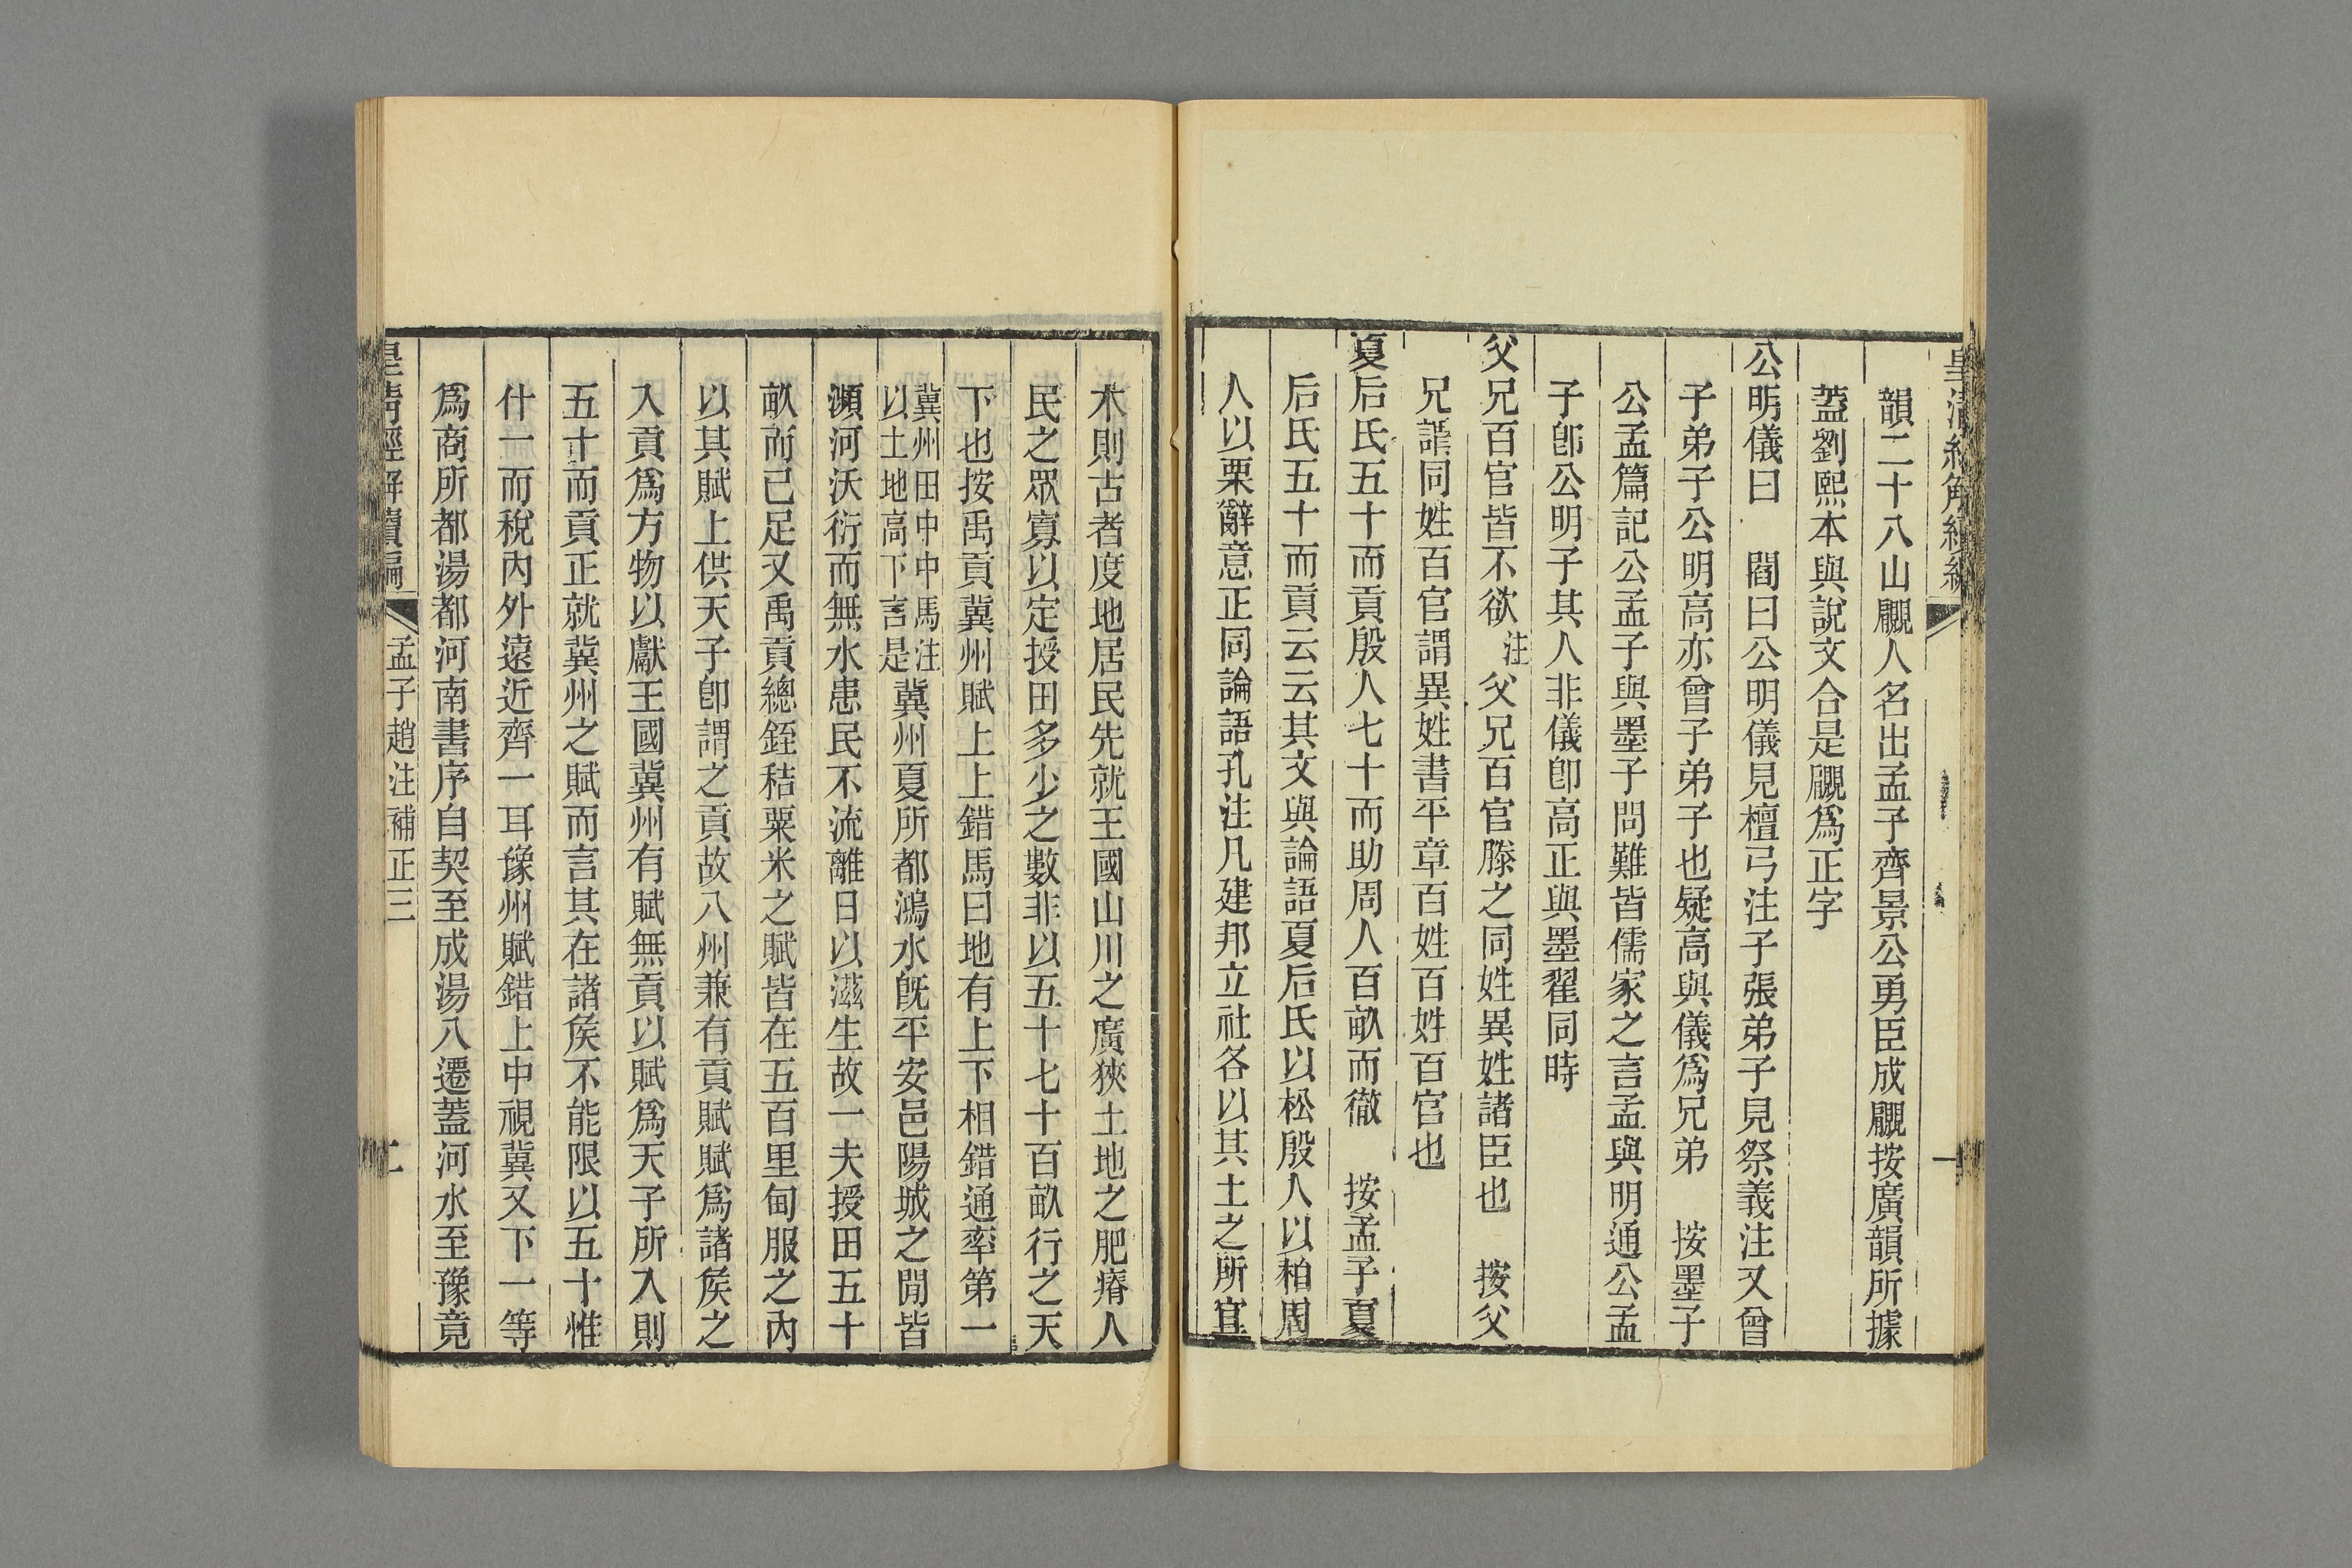 韻二十八山覸人名出孟子齊景公勇臣成覸按廣韻所據
葢劉熙本與說文合是覸爲正字
公明儀曰　閻曰公明儀見檀弓注子張弟子見祭義注又曾
子弟子公明高亦曾子弟子也疑高與儀爲兄弟　按墨子
公孟篇記公孟子與墨子問難皆儒家之言孟與明通公孟
子卽公明子其人非儀卽高正與墨翟同時
父兄百官皆不欲注父兄百官滕之同姓異姓諸臣也　按父
兄謂同姓百官謂異姓書平章百姓百姓百官也
夏后氏五十而貢殷人七十而助周人百畝而徹　按孟子夏
后氏五十而貢云云其文與論語夏后氏以松殷人以柏周
人以栗辭意正同論語孔注凡建邦立社各以其土之所宜
木則古者度地居民先就王國山川之廣狹土地之肥瘠人
民之眾寡以定授田多少之數非以五十七十百畝行之天
下也按禹貢冀州賦上上錯馬曰地有上下相錯通率第一
冀州田中中馬注以土地高下言是冀州夏所都鴻水旣平安邑陽城之閒皆
瀕河沃衍而無水患民不流離日以滋生故一夫授田五十
畝而已足又禹貢總銍秸粟米之賦皆在五百里甸服之內
以其賦上供天子卽謂之貢故八州兼有貢賦賦爲諸矦之
入貢爲方物以獻王國冀州有賦無貢以賦爲天子所入則
五十而貢正就冀州之賦而言其在諸矦不能限以五十惟
什一而稅內外遠近齊一耳豫州賦錯上中視冀又下一等
爲商所都湯都河南書序自契至成湯八遷蓋河水至豫竟
皇清經解續編　孟子趙注補正三　二